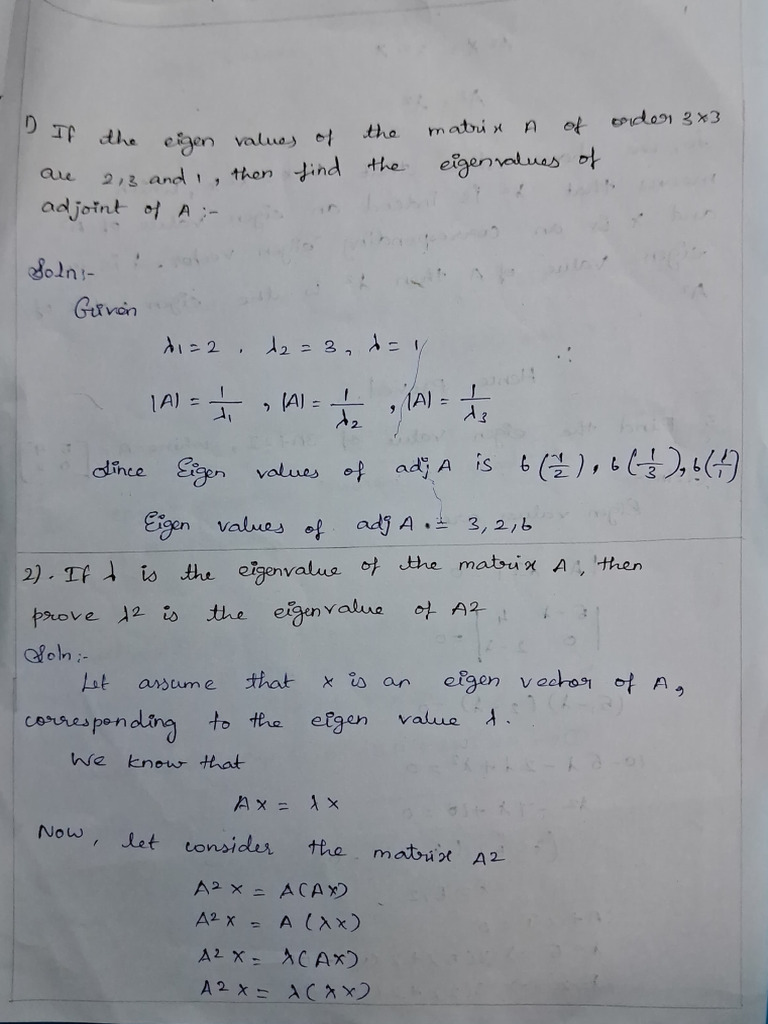 1) If the eigen values of the matrix A of order 3×3
are 2,3 and 1, then find the eigenvalues of
adjoint of A :-
Soln:-
Given
λ1 = 2, λ2 = 3, λ = 1
|A| = 1/λ1, |A| = 1/λ2, |A| = 1/λ3
Since Eigen values of adj A is 6(1/2), 6(1/3), 6(1/1)
Eigen values of adj A = 3, 2, 6
2). If λ is the eigenvalue of the matrix A, then
prove λ2 is the eigenvalue of A2
Soln:-
Let assume that x is an eigen vector of A,
corresponding to the eigen value λ.
We know that
Ax = λx
Now, let consider the matrix A2
A² x = A(Ax)
A² x = A(λx)
A² x = λ(Ax)
A² x = λ(λx)